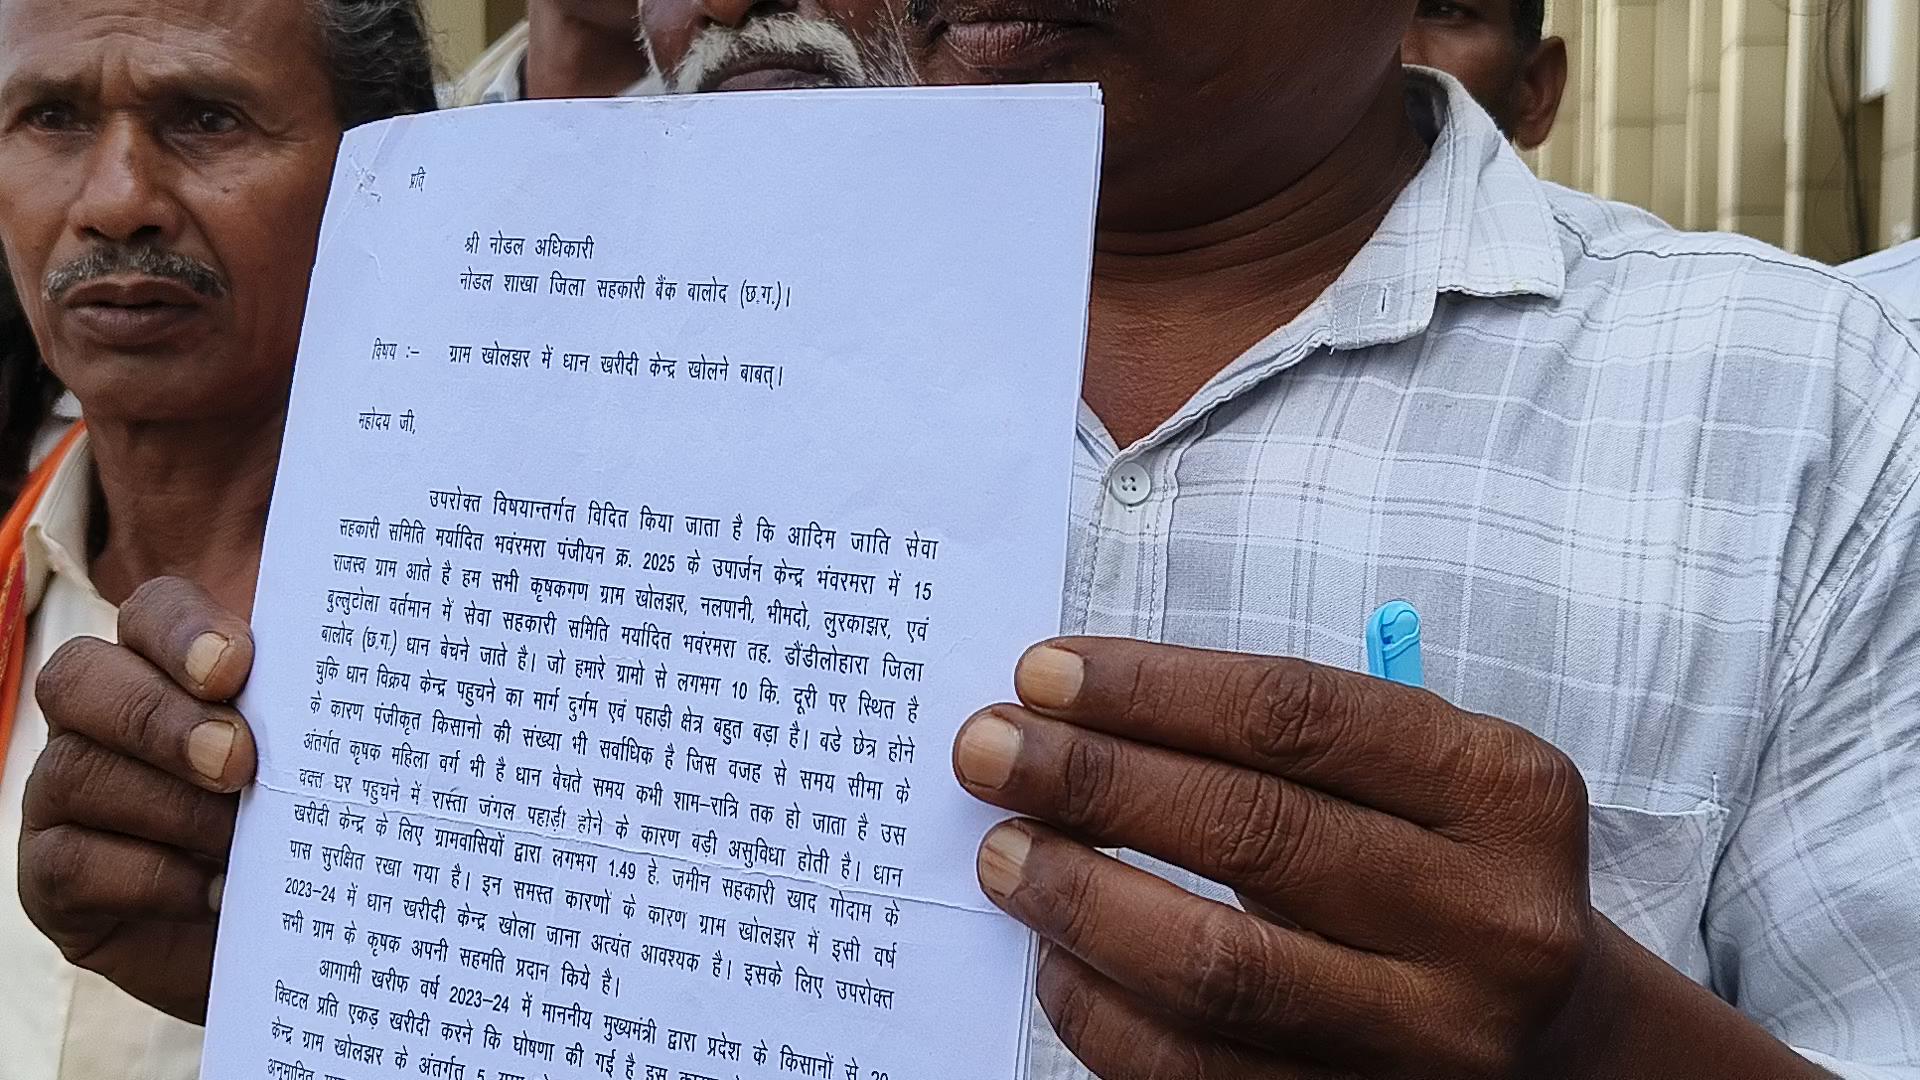 प्रति
श्री नोडल अधिकारी
नोडल शाखा जिला सहकारी बैंक बालोद (छ.ग.)।
विषय :– ग्राम खोलझर में धान खरीदी केन्द्र खोलने बाबत्।
महोदय जी,
उपरोक्त विषयान्तर्गत विदित किया जाता है कि आदिम जाति सेवा
सहकारी समिति मर्यादित भवंरमरा पंजीयन क्र. 2025 के उपार्जन केन्द्र भंवरमरा में 15
राजस्व ग्राम आते है हम सभी कृषकगण ग्राम खोलझर, नलपानी, भीमदो, लुरकाझर, एवं
बुल्लुटोला वर्तमान में सेवा सहकारी समिति मर्यादित भवंरमरा तह. डौंडीलोहारा जिला
बालोद (छ.ग.) धान बेचने जाते है। जो हमारे ग्रामो से लगभग 10 कि. दूरी पर स्थित है
चुकि धान विक्रय केन्द्र पहुचने का मार्ग दुर्गम एवं पहाड़ी क्षेत्र बहुत बड़ा है। वडे छेत्र होने
के कारण पंजीकृत किसानो की संख्या भी सर्वाधिक है जिस वजह से समय सीमा के
अंतर्गत कृषक महिला वर्ग भी है धान बेचते समय कभी शाम–रात्रि तक हो जाता है उस
वक्त घर पहुचने में रास्ता जंगल पहाड़ी होने के कारण बड़ी असुविधा होती है। धान
खरीदी केन्द्र के लिए ग्रामवासियों द्वारा लगभग 1.49 हे. जमीन सहकारी खाद गोदाम के
पास सुरक्षित रखा गया है। इन समस्त कारणों के कारण ग्राम खोलझर में इसी वर्ष
2023–24 में धान खरीदी केन्द्र खोला जाना अत्यंत आवश्यक है। इसके लिए उपरोक्त
सभी ग्राम के कृषक अपनी सहमति प्रदान किये है।
आगामी खरीफ वर्ष 2023–24 में माननीय मुख्यमंत्री द्वारा प्रदेश के किसानों से 20
क्विटल प्रति एकड़ खरीदी करने कि घोषणा की गई है इस
केन्द्र ग्राम खोलझर के अंतर्गत 5
अनुमानित